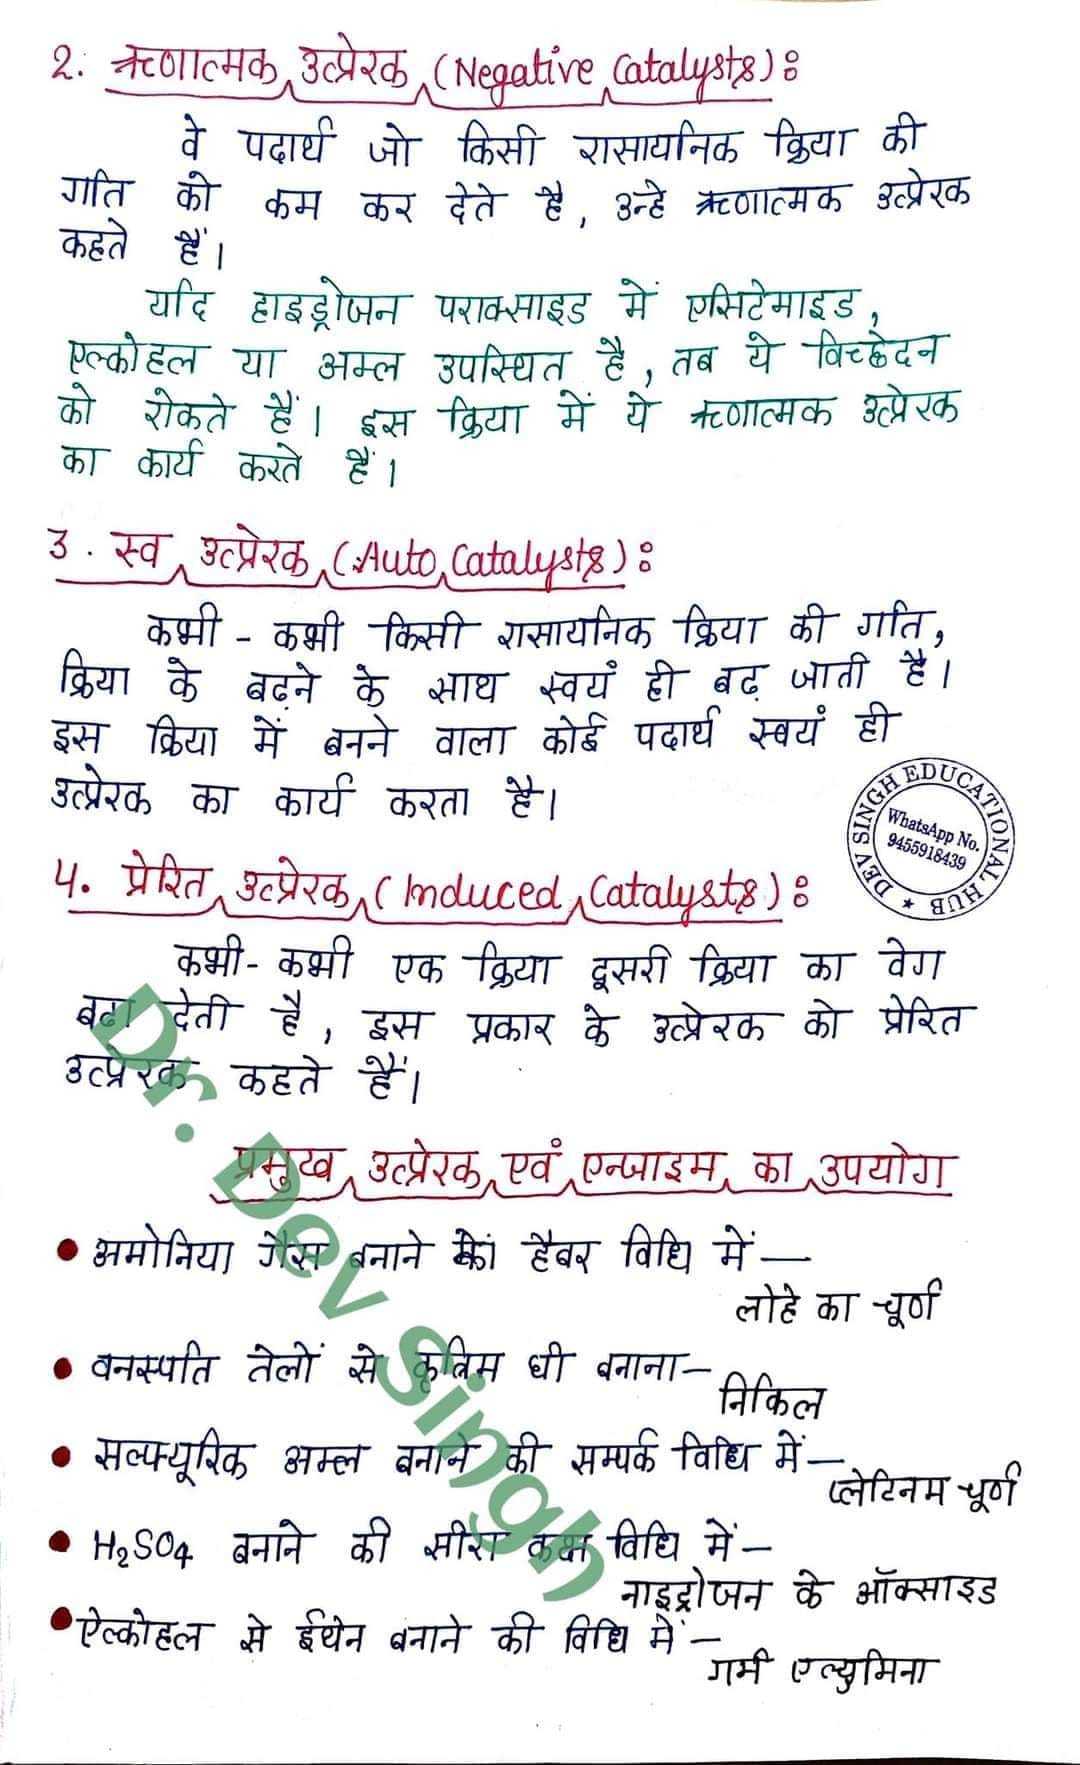 2. ऋणात्मक उत्प्रेरक (Negative Catalysts):
वे पदार्थ जो किसी रासायनिक क्रिया की
गति को कम कर देते है, उन्हे ऋणात्मक उत्प्रेरक
कहते हैं।
यदि हाइड्रोजन पराक्साइड में एसिटेमाइड,
एल्कोहल या अम्ल उपस्थित है, तब ये विच्छेदन
को रोकते हैं। इस क्रिया में ये ऋणात्मक उत्प्रेरक
का कार्य करते हैं।
3. स्व उत्प्रेरक (Auto Catalysts):
कभी - कभी किसी रासायनिक क्रिया की गति,
क्रिया के बढ़ने के साथ स्वयं ही बढ़ जाती है।
इस क्रिया में बनने वाला कोई पदार्थ स्वयं ही
उत्प्रेरक का कार्य करता है।
DEV SINGH EDUCATIONAL HUB ★
WhatsApp No.
9455918439
4. प्रेरित उत्प्रेरक (Induced Catalysts):
कभी- कभी एक क्रिया दूसरी क्रिया का वेग
बढा देती है, इस प्रकार के उत्प्रेरक को प्रेरित
उत्प्रेरक कहते हैं।
Dr. Dev Singh
प्रमुख उत्प्रेरक एवं एन्जाइम का उपयोग
• अमोनिया गैस बनाने की हैबर विधि में —
लोहे का चूर्ण
• वनस्पति तेलों से कृत्रिम घी बनाना —
निकिल
• सल्फ्यूरिक अम्ल बनाने की सम्पर्क विधि में —
प्लेटिनम चूर्ण
• H₂SO₄ बनाने की सीसा कक्ष विधि में —
नाइट्रोजन के ऑक्साइड
• ऐल्कोहल से ईथेन बनाने की विधि में —
गर्म एल्युमिना